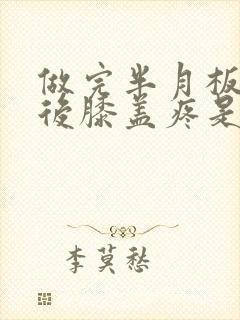 做完半月板
后膝盖疼是
李莫愁